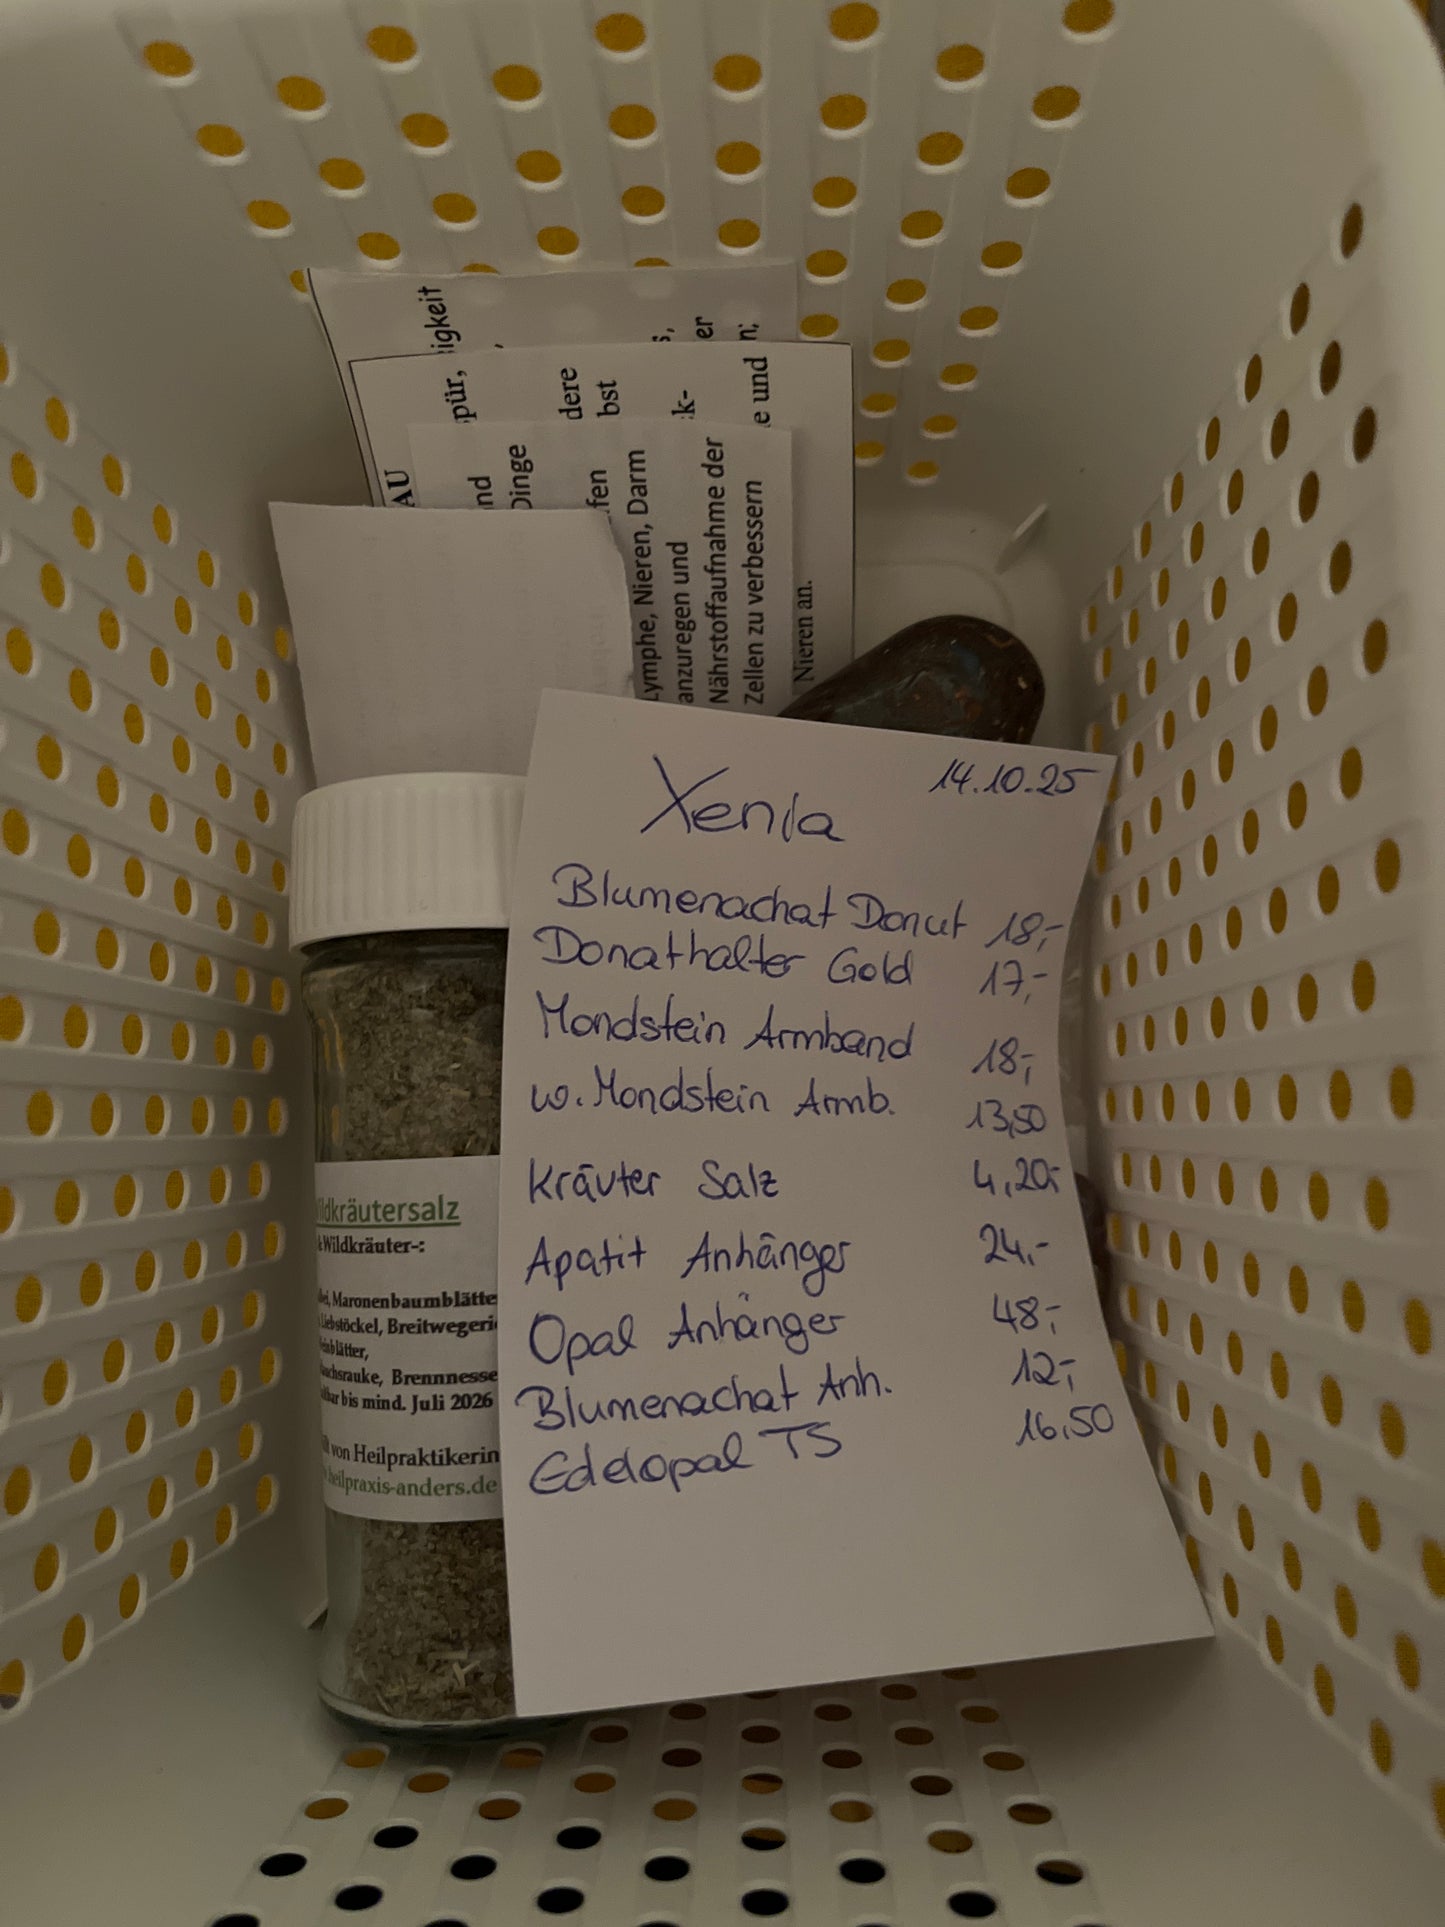 igkeit
pür,
dere
bst
s,
er
k-
n;
e und
AU
nd
Dinge
fen
Lymphe, Nieren, Darm
anzuregen und
Nährstoffaufnahme der
Zellen zu verbessern
Nieren an.
Xenia 14.10.25
Blumenachat Donut 18,-
Donathalter Gold 17,-
Mondstein Armband 18,-
w. Mondstein Armb. 13,50
Kräuter Salz 4,20,-
Apatit Anhänger 24,-
Opal Anhänger 48,-
Blumenachat Anh. 12,-
Edelopal TS 16,50
ildkräutersalz
& Wildkräuter-:
Maronenbaumblätte
Liebstöckel, Breitwegeri
inblätter,
uchsrauke, Brennnesse
ltbar bis mind. Juli 2026
llt von Heilpraktikerin
heilpraxis-anders.de